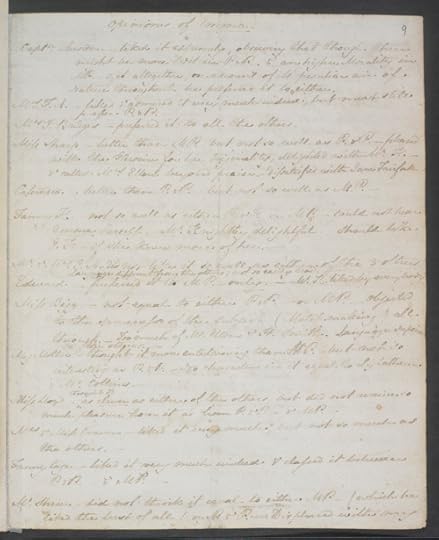 Opinions of Emma.
9
Captn. Austen. - liked it extremely, observing that though there
might be more Wit in P & P - & an higher Morality in
M P - yet altogether, on account of it's peculiar air of
Nature throughout, he preferred it to either.
Mrs. F. A. - liked & admired it very much indeed, but must still
prefer P. & P.
Mrs. J. Bridges - preferred it to all the others.
Miss Sharp - better than M P. - but not so well as P. & P. - pleased
with the Heroine for her Originality, delighted with Mr. K -
& called Mrs. Elton beyond praise. - dissatisfied with Jane Fairfax.
Cassandra - better than P. & P. - but not so well as M. P. -
Fanny K. - not so well as either P. & P. or M P. - could not bear
Emma herself. - Mr. Knightley delightful. - Should like
J. F. - if she knew more of her. -
Mr. & Mrs. J. A. - did not like it so well as either of the 3 others.
Language different from the others; not so easily read.
Edward - preferred it to M P. - only. - Mr. K. liked by every body.
Miss Bigg - not equal to either P & P. - or M P. - objected
to the sameness of the subject (Match-making) all
through. - Too much of Mr. Elton & H. Smith. Language superior
to the others. -
My Mother - thought it more entertaining than M P. - but not so
interesting as P. & P. - No characters in it equal to Ly Catherine
& Mr. Collins. -
Miss Lloyd - thought it as clever as either of the others, but did not receive so
much pleasure from it as from P. & P - & M P. -
Mrs. & Miss Craven - liked it very much, but not so much as
the others. -
Fanny Cage - liked it very much indeed & classed it between
P & P. - & M P. -
Mr. Sherer - did not think it equal to either M P - (which he
liked the best of all) or P & P. - Displeased with my